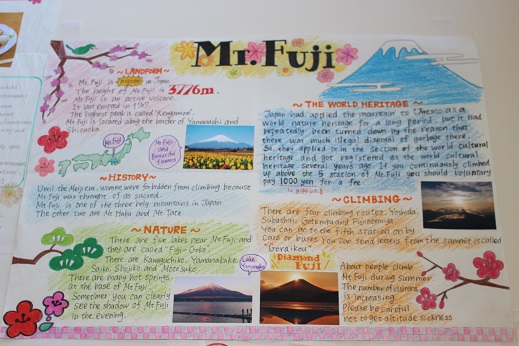 Mt. Fuji
~LANDFORM~
Mt. Fuji is highest in Japan
The height of Mt. Fuji is 3776m.
Mt. Fuji is an active volcano.
It last erupted in 1707.
The highest peak is called "Kengamine".
Mt. Fuji is located along the border of Yamanashi and
Shizuoka
Mt. Fuji
Mt. Fuji
and
Beautiful
flowers
~HISTORY~
Until the Meiji era, women were forbidden from climbing because
Mt. Fuji was thought of as sacred.
Mt. Fuji is one of the three holy mountains in Japan
The other two are Mt. Haku and Mt. Tate
~NATURE~
There are five lakes near Mt. Fuji, and
they are called "Fuji-Goko".
There are Kawaguchiko, Yamanakako,
Saiko, Shojiko and Motosuko.
There are many hot springs
at the base of Mt. Fuji.
Sometimes you can clearly
see the shadow of Mt. Fuji
in the evening.
Lake
Yamanaka
~THE WORLD HERITAGE~
Japan had applied the mountain to Unesco as a
world nature heritage for a long period, but it had
repeatedly been turned down by the reason that
there was much illegal disposal of garbage there.
So, they applied it in the section of the world cultural
heritage and got registered as the world cultural
heritage several years ago. If you continuously climbed
up above the 5 station of Mt. Fuji, you should voluntary
pay 1000 yen for a fee.
~CLIMBING~
There are four climbing routes. Yoshida,
Subashiri, Gotemba and Fujinomiya.
You can go to the fifth station on by
cars or buses. You can send letters from the summit is called
"Goraikou"
Diamond
Fuji
About people climb
Mt. Fuji during Summer
The number of visitors
is increasing.
Please be careful
not to get altitude sickness